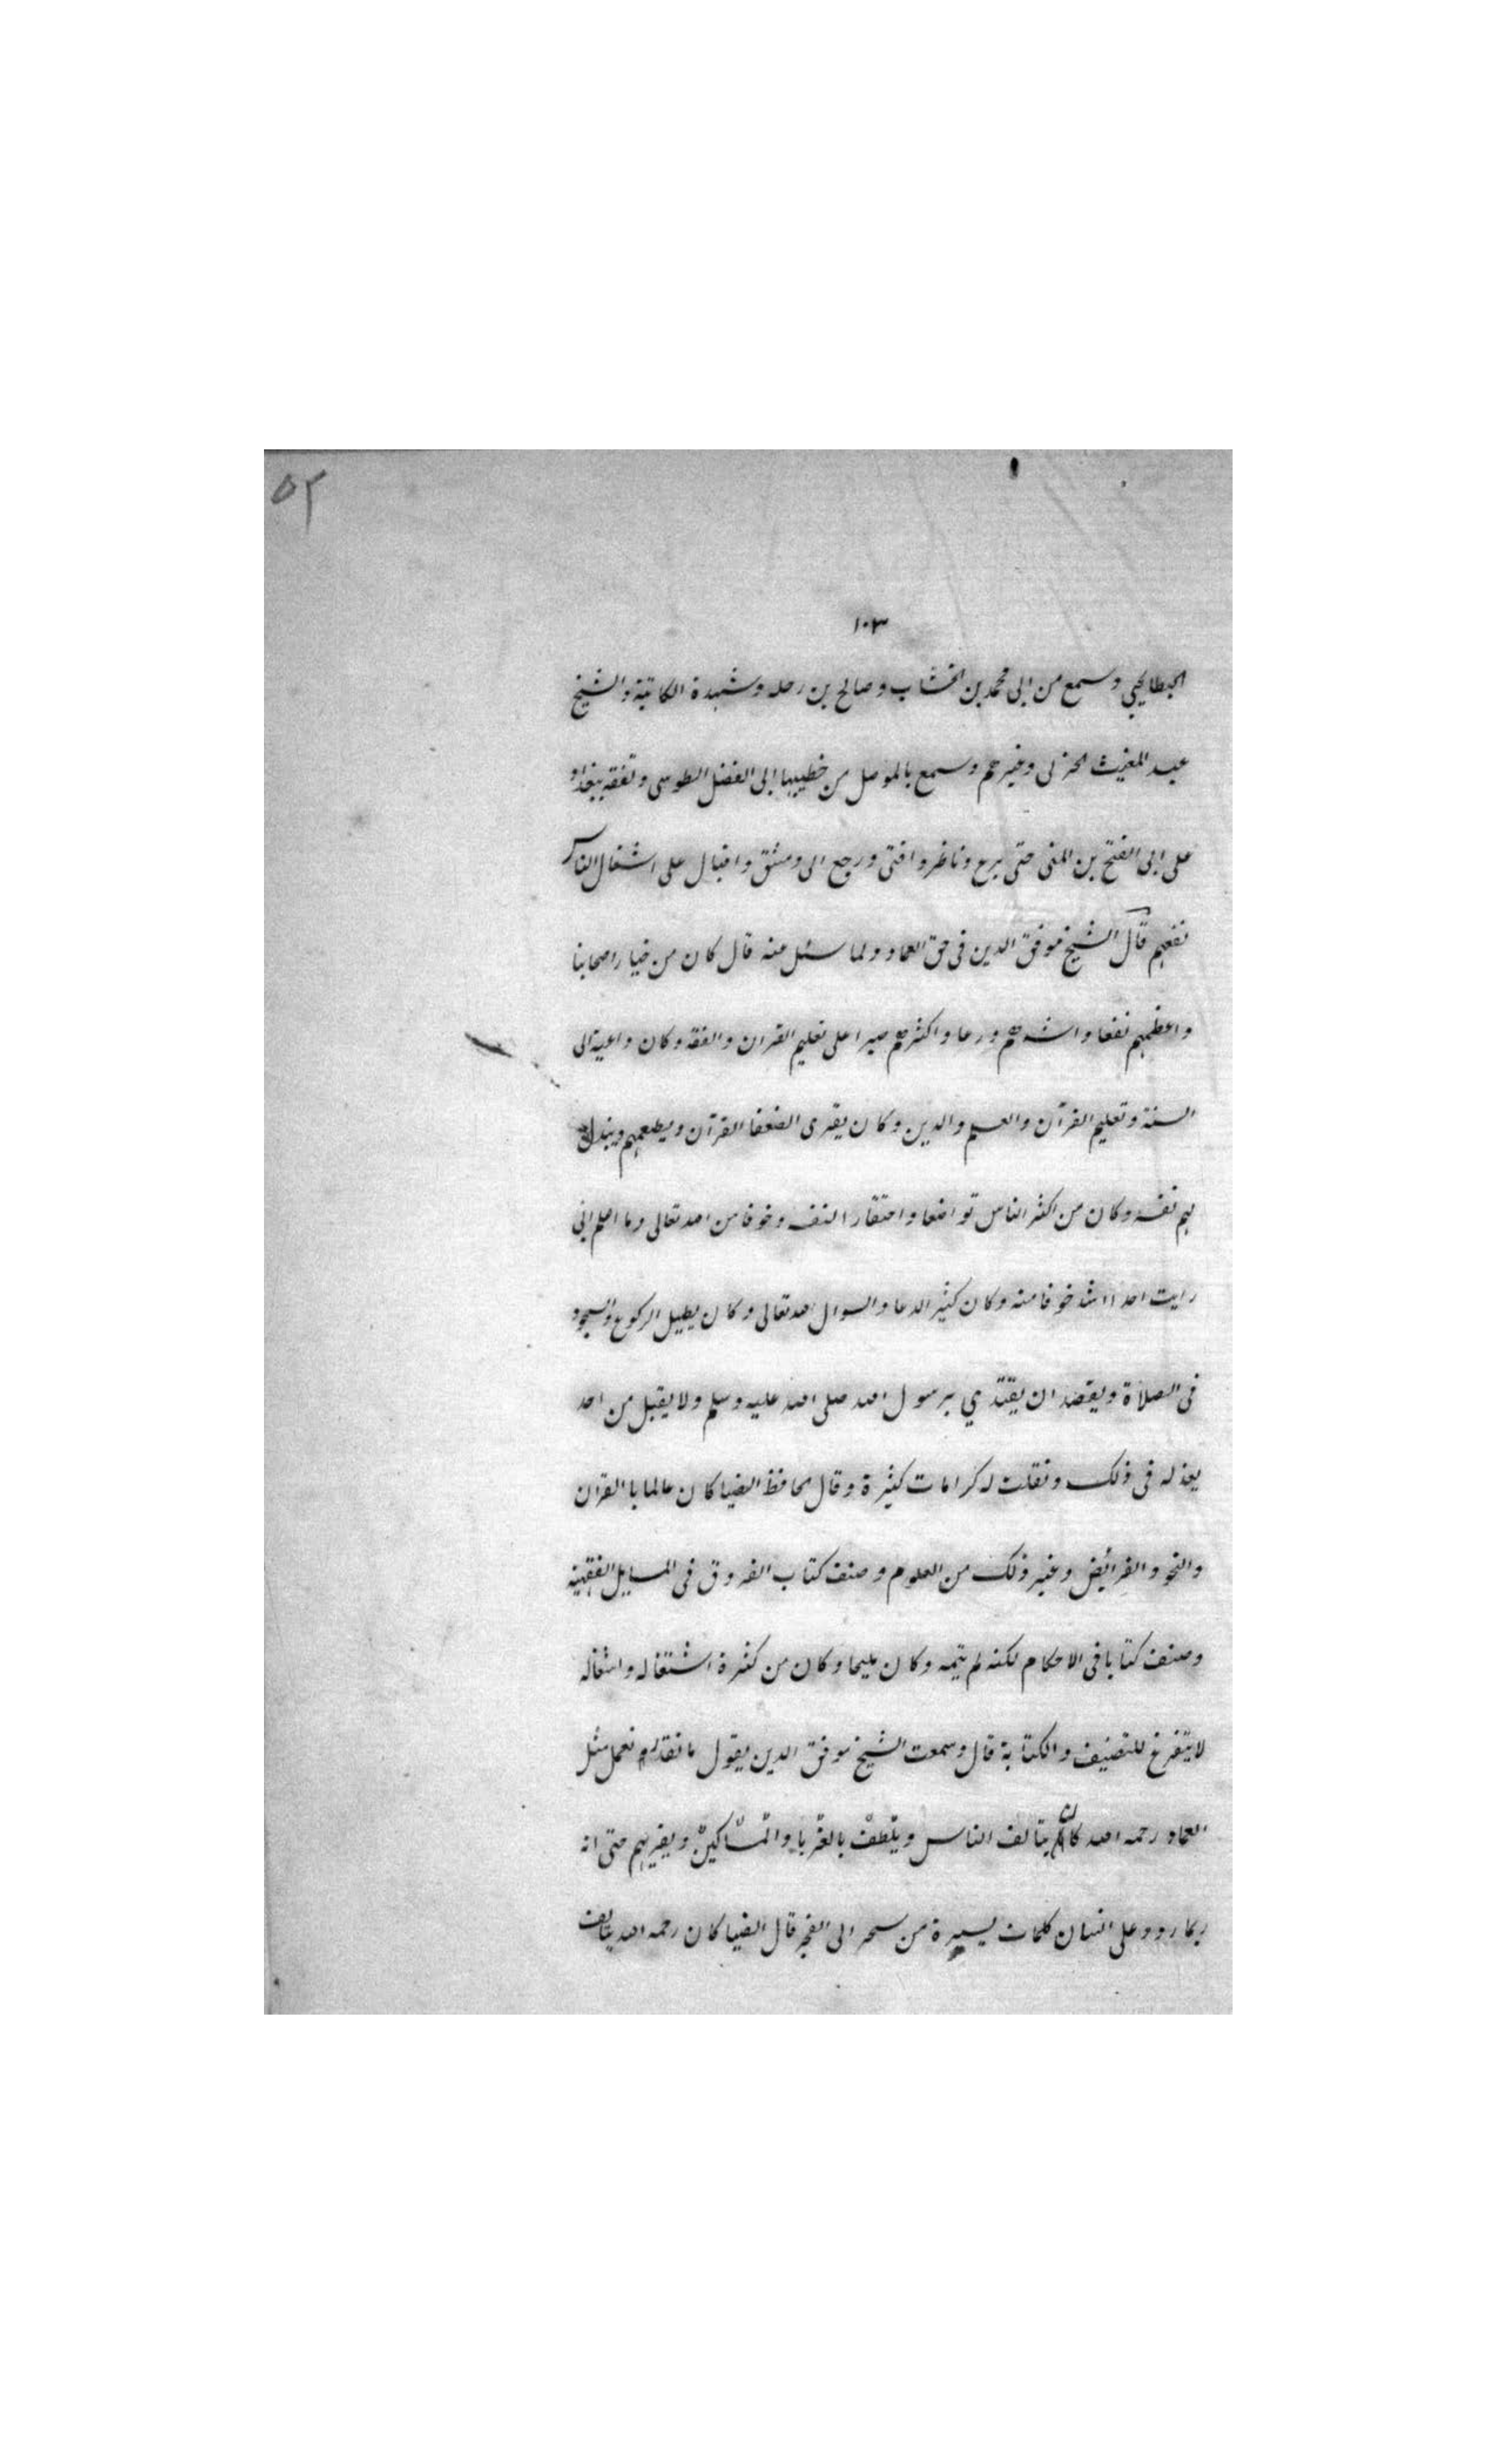 ٥٢
١٠٣
البطايحي وسمع من ابى محمد بن الخشاب وصالح بن رحله وشهدة الكاتبة والشيخ
عبد المغيث الحربى وغيرهم وسمع بالموصل من خطيبها ابى الفضل الطوسى وتفقه ببغداد
على ابى الفتح بن المنى حتى برع وناظر وافتى ورجع الى دمشق واقبال على اشغال الناس
نفعهم قال الشيخ موفق الدين فى حق العماد ولما سئل عنه قال كان من خيار اصحابنا
واعظمهم نفعا واشدهم ورعا واكثرهم صبرا على تعليم القران والفقه وكان داعية الى
السنة وتعليم القرآن والعلم والدين وكان يقرى الضعفا القرآن ويطعمهم ويبذل
لهم نفسه وكان من اكثر الناس تواضعا واحتقارا لنفسه وخوفا من الله تعالى وما اعلم انى
رايت احدا اشد خوفا منه وكان كثير الدعا والسوال الله تعالى وكان يطيل الركوع والسجود
فى الصلاة ويقصد ان يقتدي برسول الله صلى الله عليه وسلم ولا يقبل من احد
يعذله فى ذلك ونقلت له كرامات كثيرة وقال الحافظ الضيا كان عالما با القران
والنحو والفرائض وغير ذلك من العلوم وصنف كتاب الفروق فى المسايل الفقهية
وصنف كتابا فى الاحكام لكنه لم يتمه وكان مليحا وكان من كثرة اشتغاله واشغاله
لا يتفرغ للتصنيف والكتابة قال وسمعت الشيخ موفق الدين يقول ما نقدر نعمل مثل
العماد رحمه الله كان يتالف الناس ويتلطف بالغربا والمساكين ويقريهم حتى انه
ربما ردد على انسان كلمات يسيرة من سحر الى الفجر قال الضيا كان رحمه الله يتالف